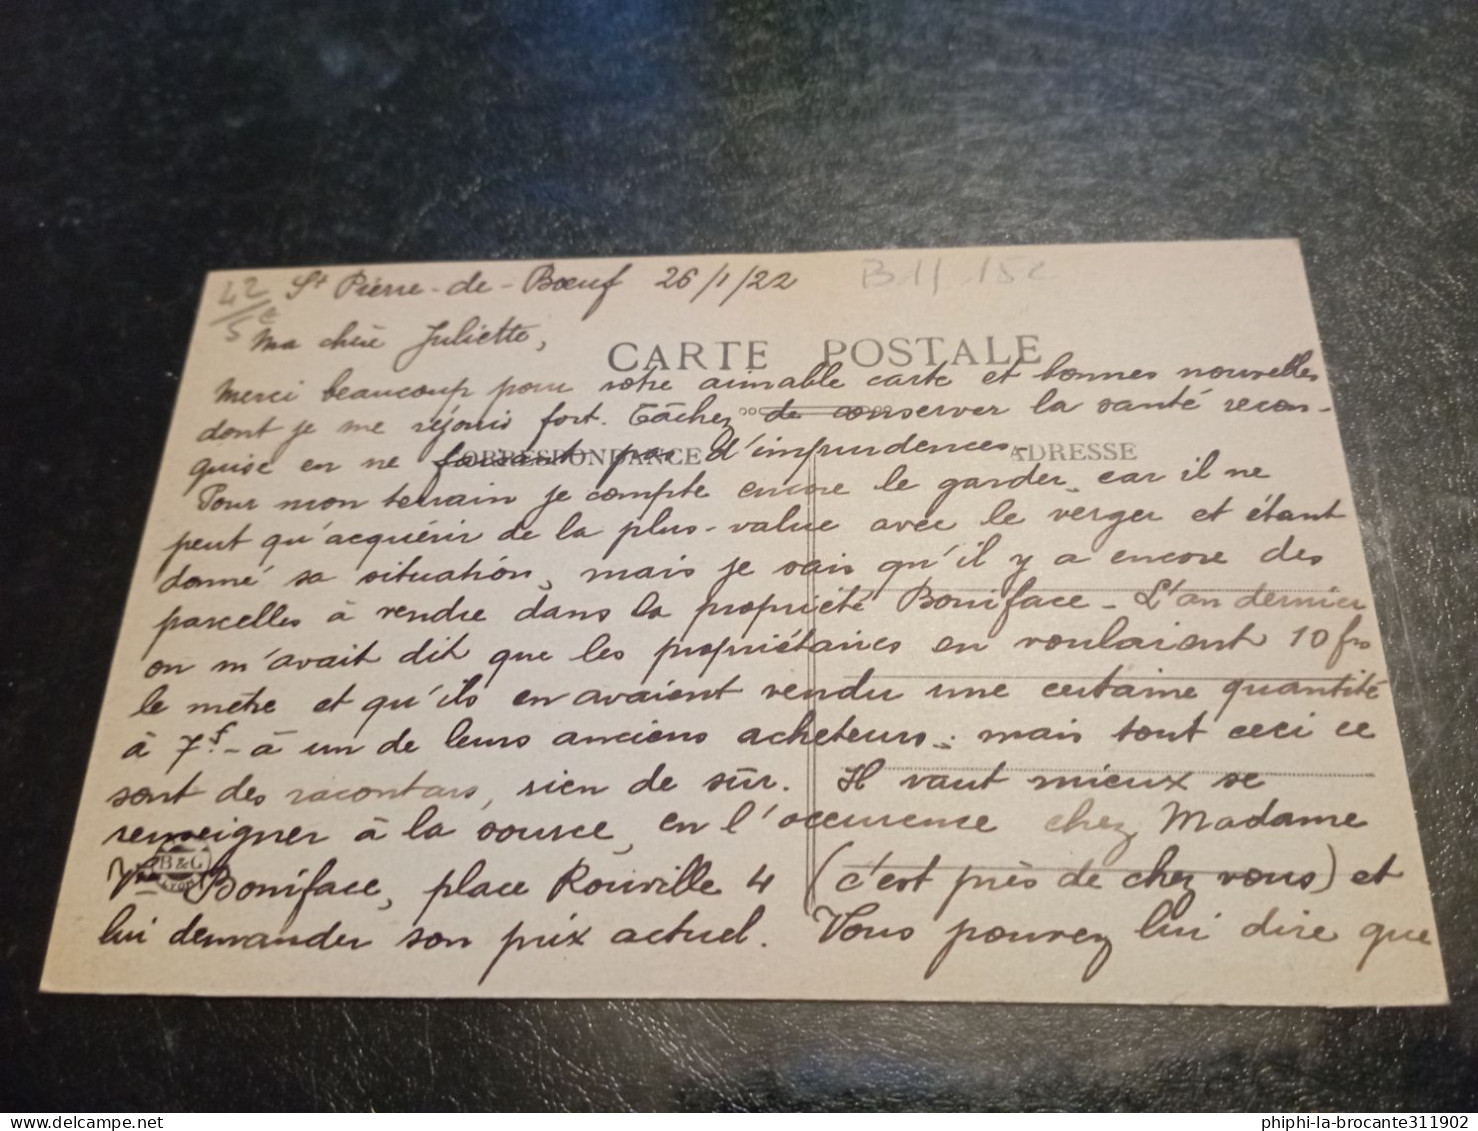 42 St Pierre-de-Bœuf 26/1/22 B11 15c
5e
Ma chère Juliette,
CARTE POSTALE
Merci beaucoup pour votre aimable carte et bonnes nouvelles
dont je me réjouis fort. Tâchez de conserver la santé recon-
quise en ne faisant pas d'imprudences.
CORRESPONDANCE ADRESSE
Pour mon terrain je compte encore le garder, car il ne
peut qu'acquérir de la plus-value avec le verger et étant
donné sa situation, mais je sais qu'il y a encore des
parcelles à vendre dans la propriété Boniface - L'an dernier
on m'avait dit que les propriétaires en voulaient 10 frs
le mètre et qu'ils en avaient vendu une certaine quantité
à 7f. - à un de leurs anciens acheteurs ; mais tout ceci ce
sont des racontars, rien de sûr. Il vaut mieux se
renseigner à la source, en l'occurence chez Madame
B&G
LYON
Vve Boniface, place Rouville 4 (c'est près de chez vous) et
lui demander son prix actuel. Vous pouvez lui dire que
phiphi-la-brocante311902